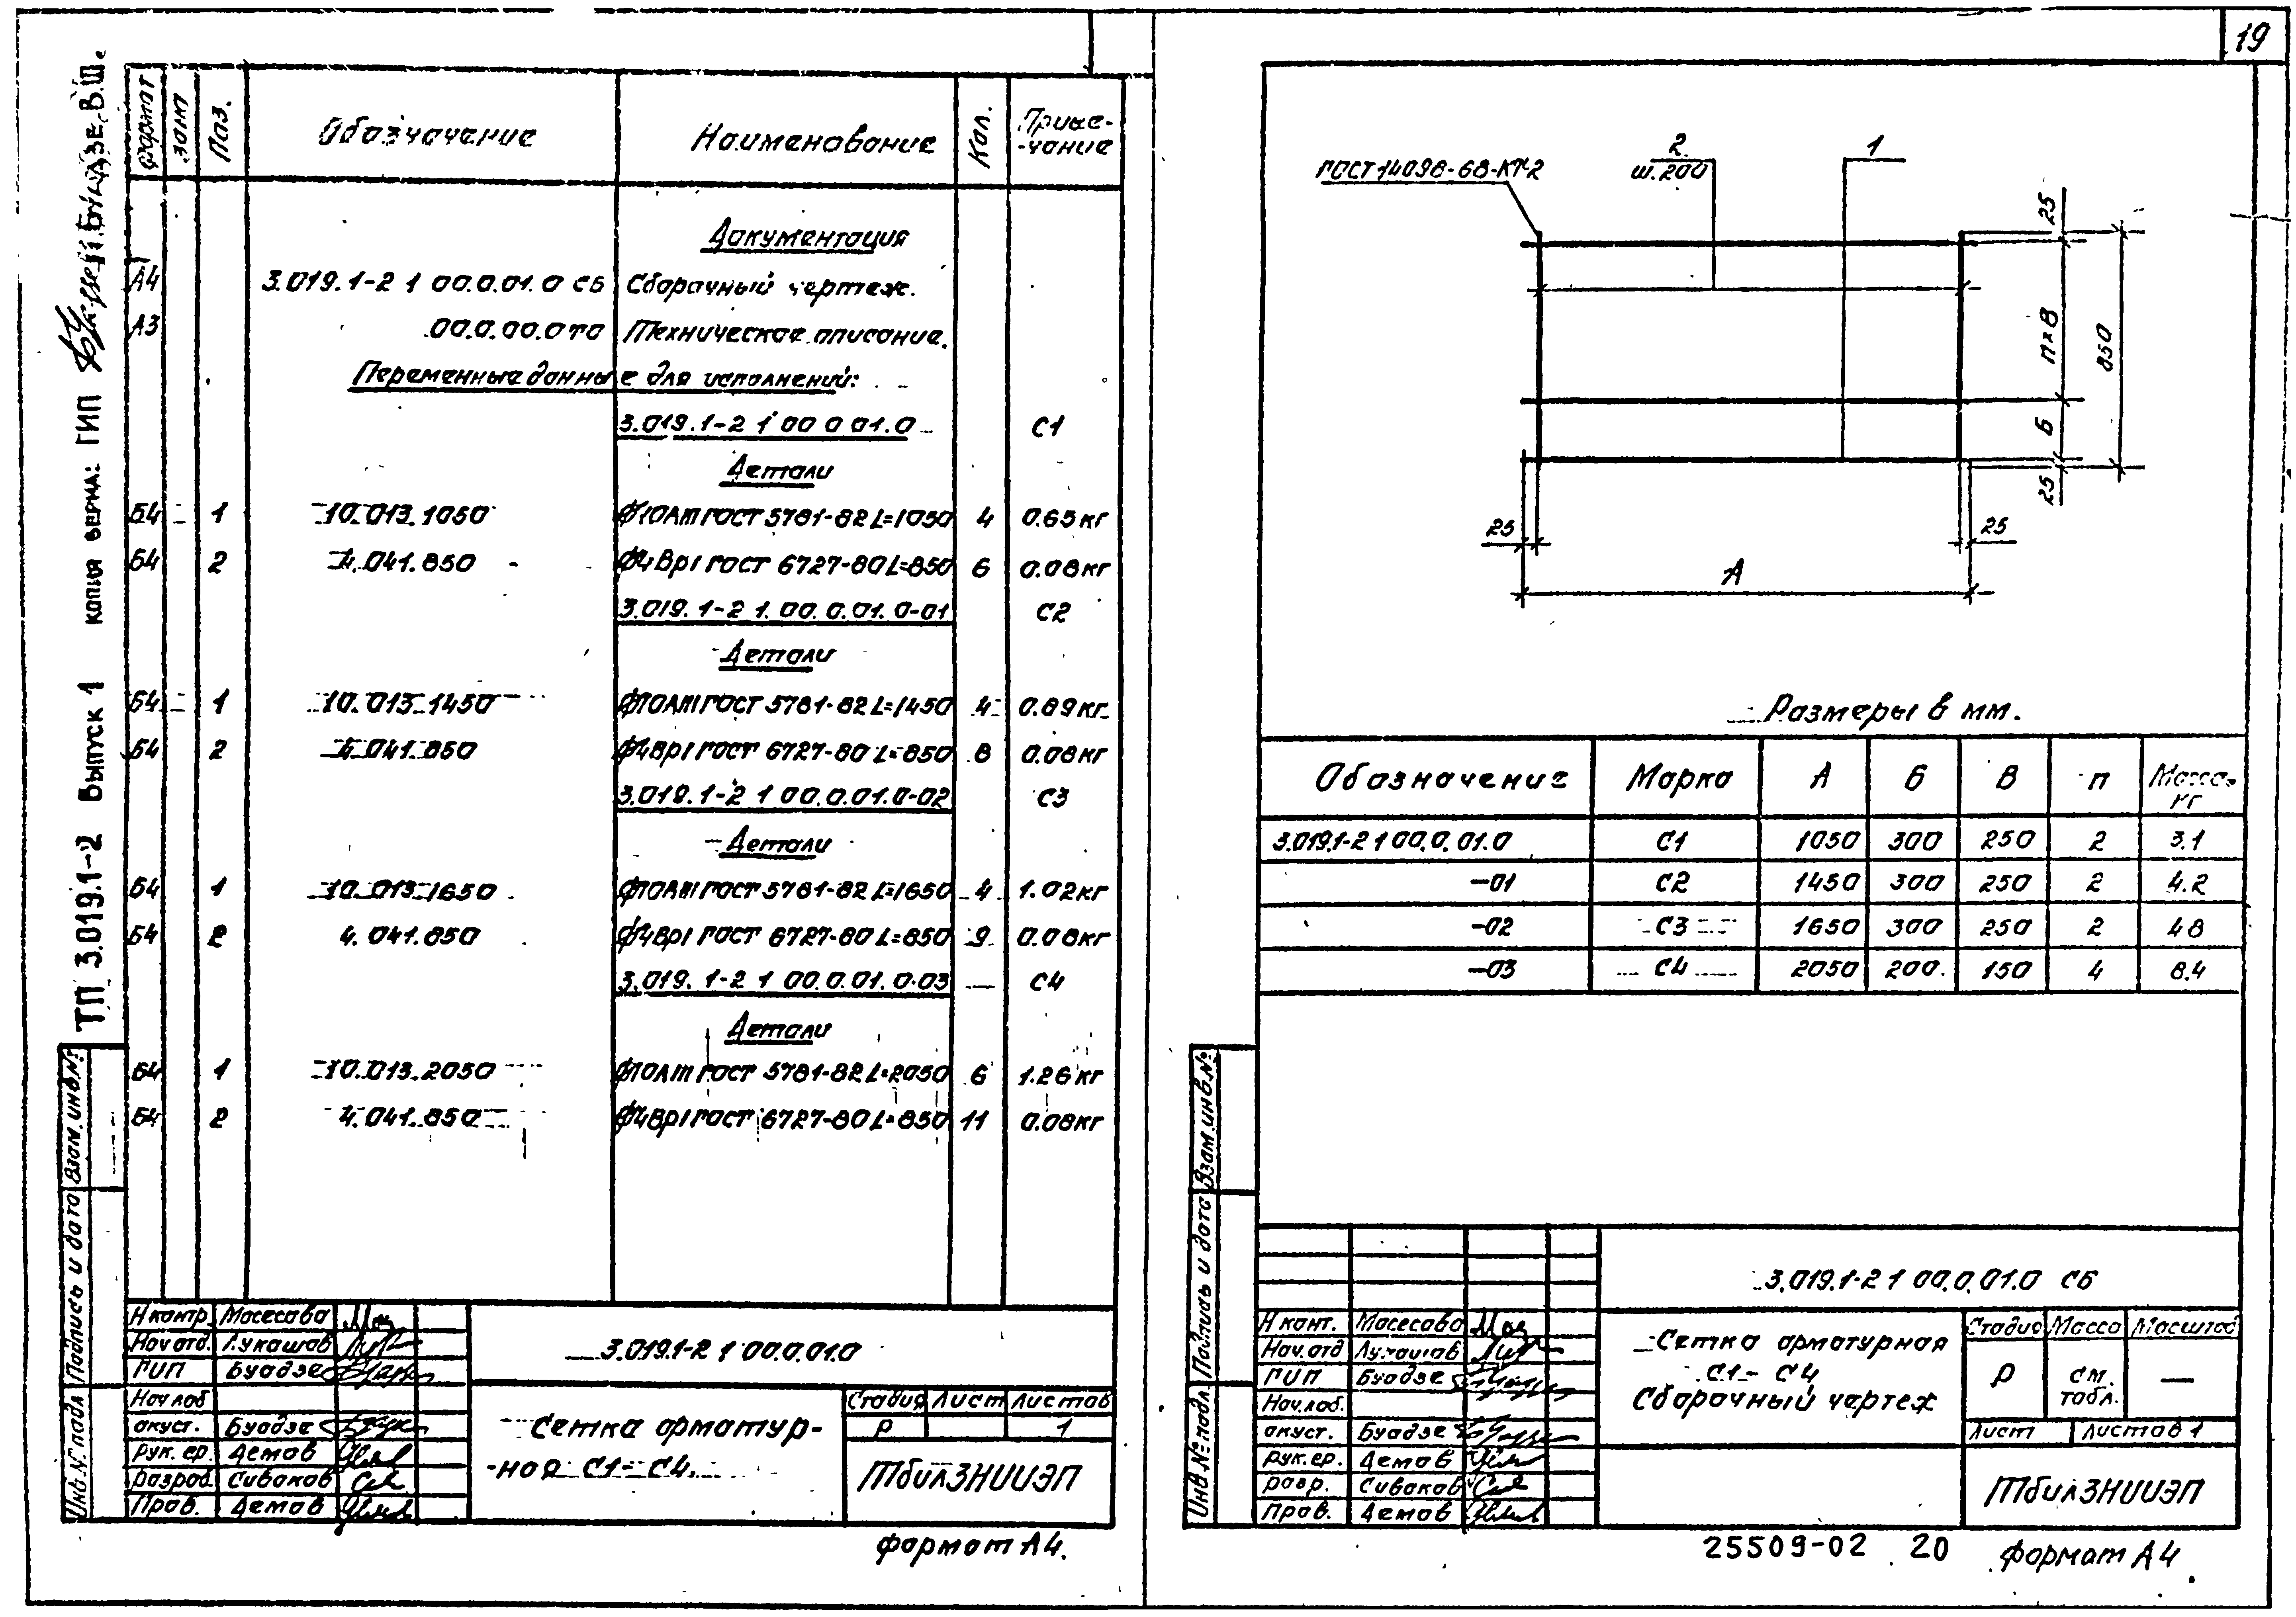 19
ТП 3.019.1-2 Выпуск 1 копия верна: ГИП БУАДЗЕ В.Ш.
Формат Зона Поз. Обозначение Наименование Кол. Приме-
-чание
Документация
А4 3.019.1-2 1 00.0.01.0 СБ Сборочный чертеж.
А3 00.0.00.0 ТО Техническое описание.
Переменные данные для исполнений:
3.019.1-2 1 00 0 01.0 С1
Детали
Б4 1 10.013.1050 Ф10АIII ГОСТ 5781-82 L=1050 4 0.65 кг
Б4 2 4.041.850 Ф4ВрI ГОСТ 6727-80 L=850 6 0.08 кг
3.019.1-2 1.00.0.01.0-01 С2
Детали
Б4 1 10.013.1450 Ф10АIII ГОСТ 5781-82 L=1450 4 0.89 кг
Б4 2 4.041.850 Ф4ВрI ГОСТ 6727-80 L=850 8 0.08 кг
3.019.1-2 1 00.0.01.0-02 С3
Детали
Б4 1 10.013.1650 Ф10АIII ГОСТ 5781-82 L=1650 4 1.02 кг
Б4 2 4.041.850 Ф4ВрI ГОСТ 6727-80 L=850 9 0.08 кг
3.019.1-2 1 00.0.01.0-03 С4
Детали
Б4 1 10.013.2050 Ф10АIII ГОСТ 5781-82 L=2050 6 1.26 кг
Б4 2 4.041.850 Ф4ВрI ГОСТ 6727-80 L=850 11 0.08 кг
Взам.инв.№
Подпись и дата
Инв.№ подл
Н контр. Масесова
Нач отд. Лукашов
ГИП Буадзе
Нач лаб
акуст. Буадзе
рук. гр. Демов
разраб. Сиваков
Пров. Демов
3.019.1-2 1 00.0.01.0
Сетка арматур-
-ная С1- С4.
Стадия Лист Листов
Р 1
ТбилЗНИИЭП
Формат А4.
ГОСТ 14098-68-КТ-2
2
ш.200
1
25
п×В
850
Б
25
25
25
А
Размеры в мм.
Обозначение Марка А Б В п Масса,
кг
3.019.1-2 1 00.0.01.0 С1 1050 300 250 2 3.1
-01 С2 1450 300 250 2 4.2
-02 С3 1650 300 250 2 4 8
-03 С4 2050 200. 150 4 8.4
Взам.инв.№
Подпись и дата
Инв.№ подл.
3.019.1-2 1 00.0.01.0 СБ
Н конт. Масесова
Нач.отд Лукашов
ГИП Буадзе
Нач.лаб.
акуст. Буадзе
рук.гр. Демов
разр. Сиваков
Пров. Демов
Сетка арматурная
С1 - С4
Сборочный чертеж
Стадия Масса Масштаб
Р см.
табл. —
Лист Листов 1
ТбилЗНИИЭП
25509-02 20 Формат А4